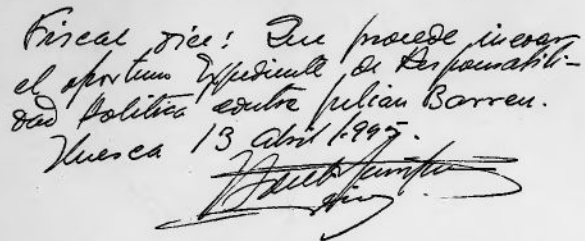 Fiscal dice: Que procede incoar
el oportuno Expediente de Responsabili-
dad Politica contra Julian Barreu.
Huesca 13 abril 1.995.